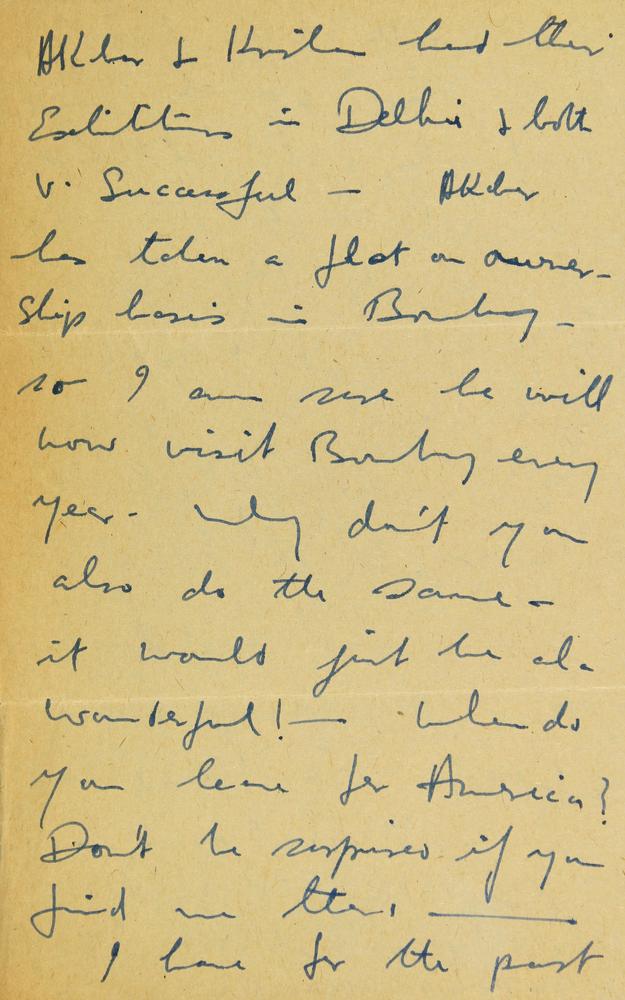 Akbar & Krishen had their
Exhibitions in Delhi & both
v. Successful — Akbar
has taken a flat on owner-
ship basis in Bombay -
so I am sure he will
now visit Bombay every
year - Why don't you
also do the same -
it would just be
wonderful! — When do
you leave for America?
Don't be surprised if you
find me there ———
I have for the past